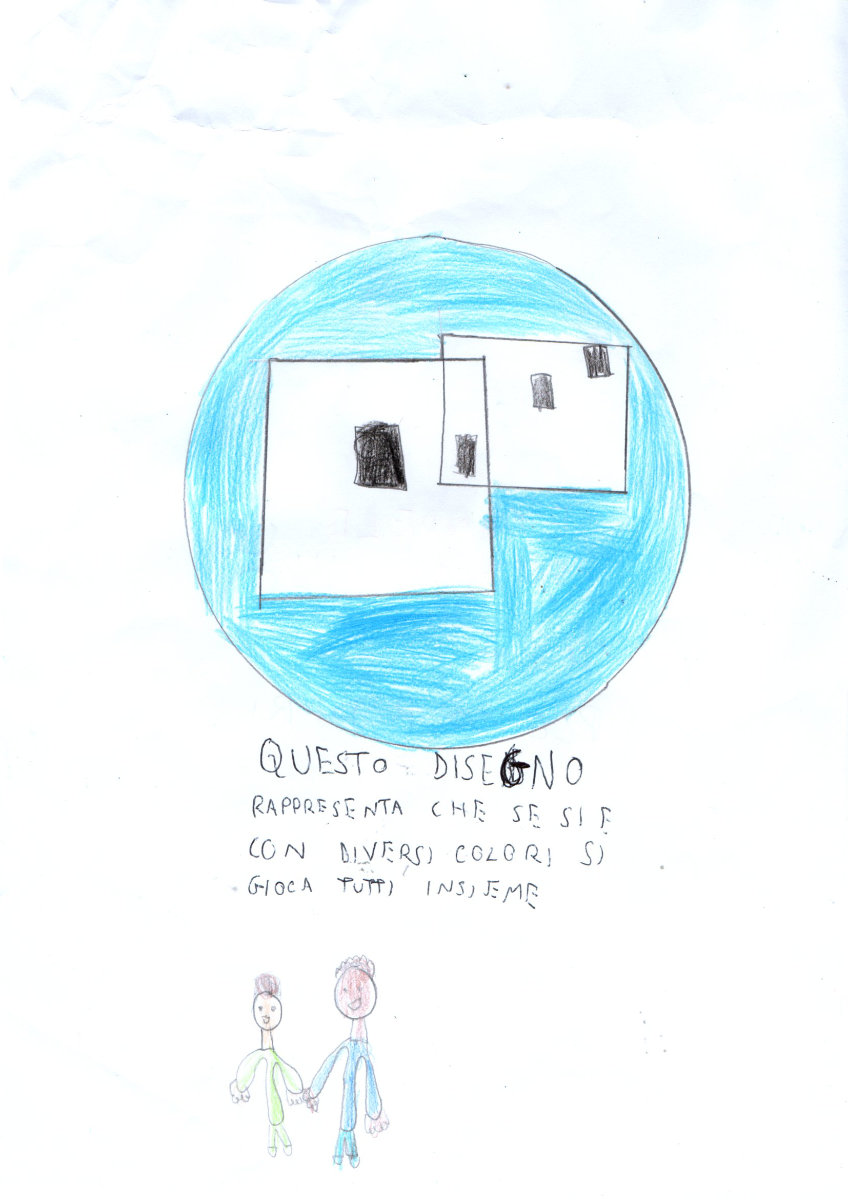 QUESTO DISEGNO
RAPPRESENTA CHE SE SI E
CON DIVERSI COLORI SI
GIOCA TUTTI INSIEME